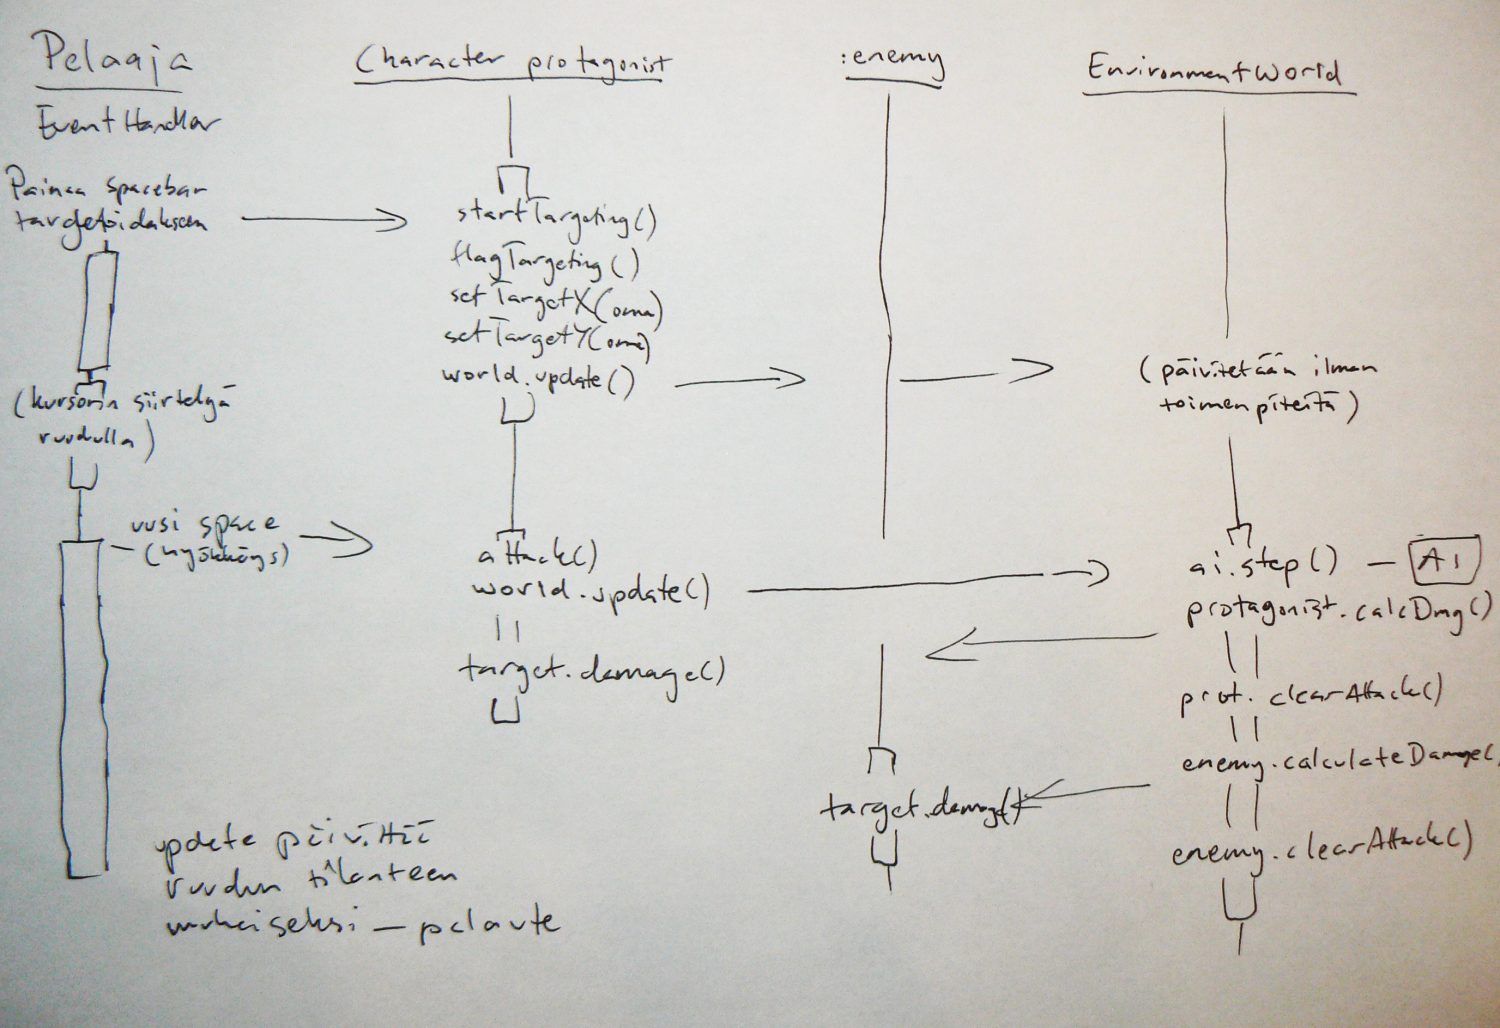 Pelaaja
EventHandler
Painaa spacebar
targetoidakseen
(kursorin siirtelyä
ruudulla)
uusi space
(hyökkäys)
update päivittää
ruudun tilanteen
mukaiseksi — palaute
Character protagonist
startTargeting()
flagTargeting()
setTargetX(oma)
setTargetY(oma)
world.update()
attack()
world.update()
target.damage()
:enemy
target.damage()
EnvironmentWorld
(päivitetään ilman
toimenpiteitä)
ai.step() — AI
protagonist.calcDmg()
prot. clearAttack()
enemy.calculateDamage(
enemy.clearAttack()